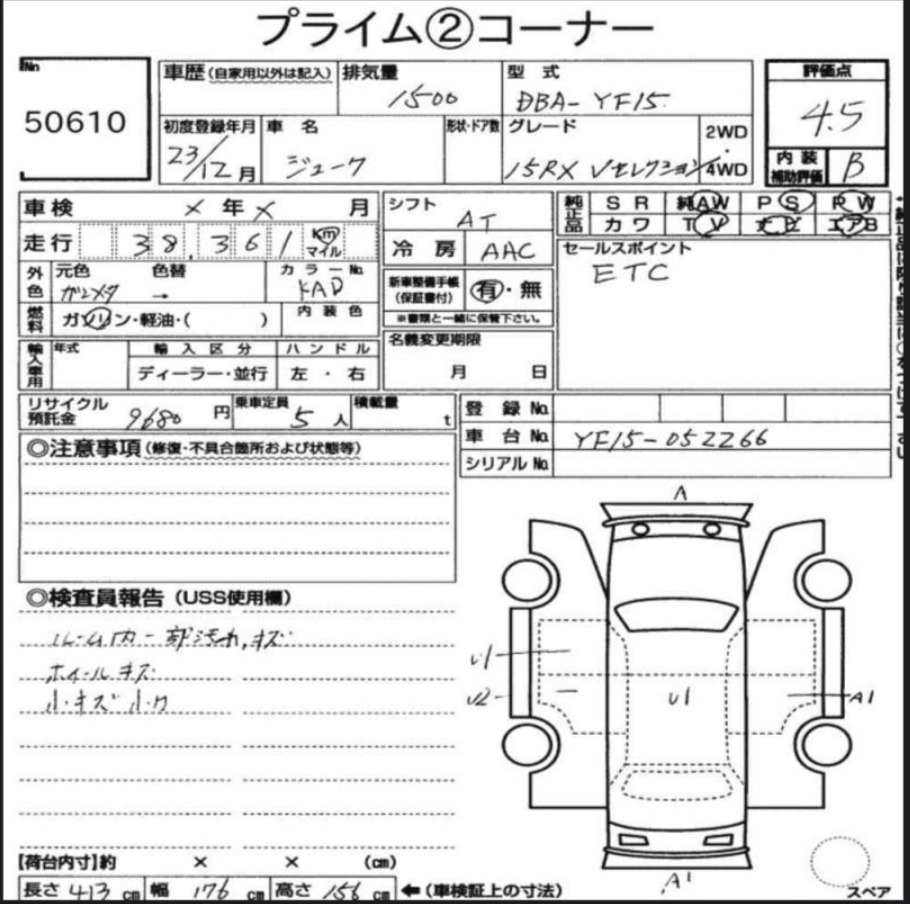 プライム②コーナー
No 50610
車歴(自家用以外は記入) 排気量 1500 型式 DBA-YF15
評価点 4.5
初度登録年月 23/12月 車名 ジューク 形状・ドア数 グレード 15RX Vセレクション 2WD・4WD
内装補助評価 B
車検 × 年 × 月
走行 38,361 Km マイル
シフト AT
冷房 AAC
純正品 SR 純AW PS PW
カワ TV ナビ エアB
セールスポイント
ETC
外色 元色 ガンメタ 色替 → カラーNo. KAD
燃料 ガソリン・軽油・( ) 内装色
新車整備手帳(保証書付) 有・無
※書類と一緒に保管下さい。
輸入車用 年式 輸入区分 ハンドル
ディーラー・並行 左・右
名義変更期限
月 日
リサイクル預託金 9680円 乗車定員 5人 積載量 t
登録No.
車台No. YF15-052266
シリアルNo.
◎注意事項(修復・不具合箇所および状態等)
◎検査員報告(USS使用欄)
ルーム内一部汚れ,キズ
ホイールキズ
小キズ 小凹
A
U1
U2
U1
A1
A1
スペア
【荷台内寸】約 × × (cm)
長さ 413 cm 幅 176 cm 高さ 156 cm ←(車検証上の寸法)